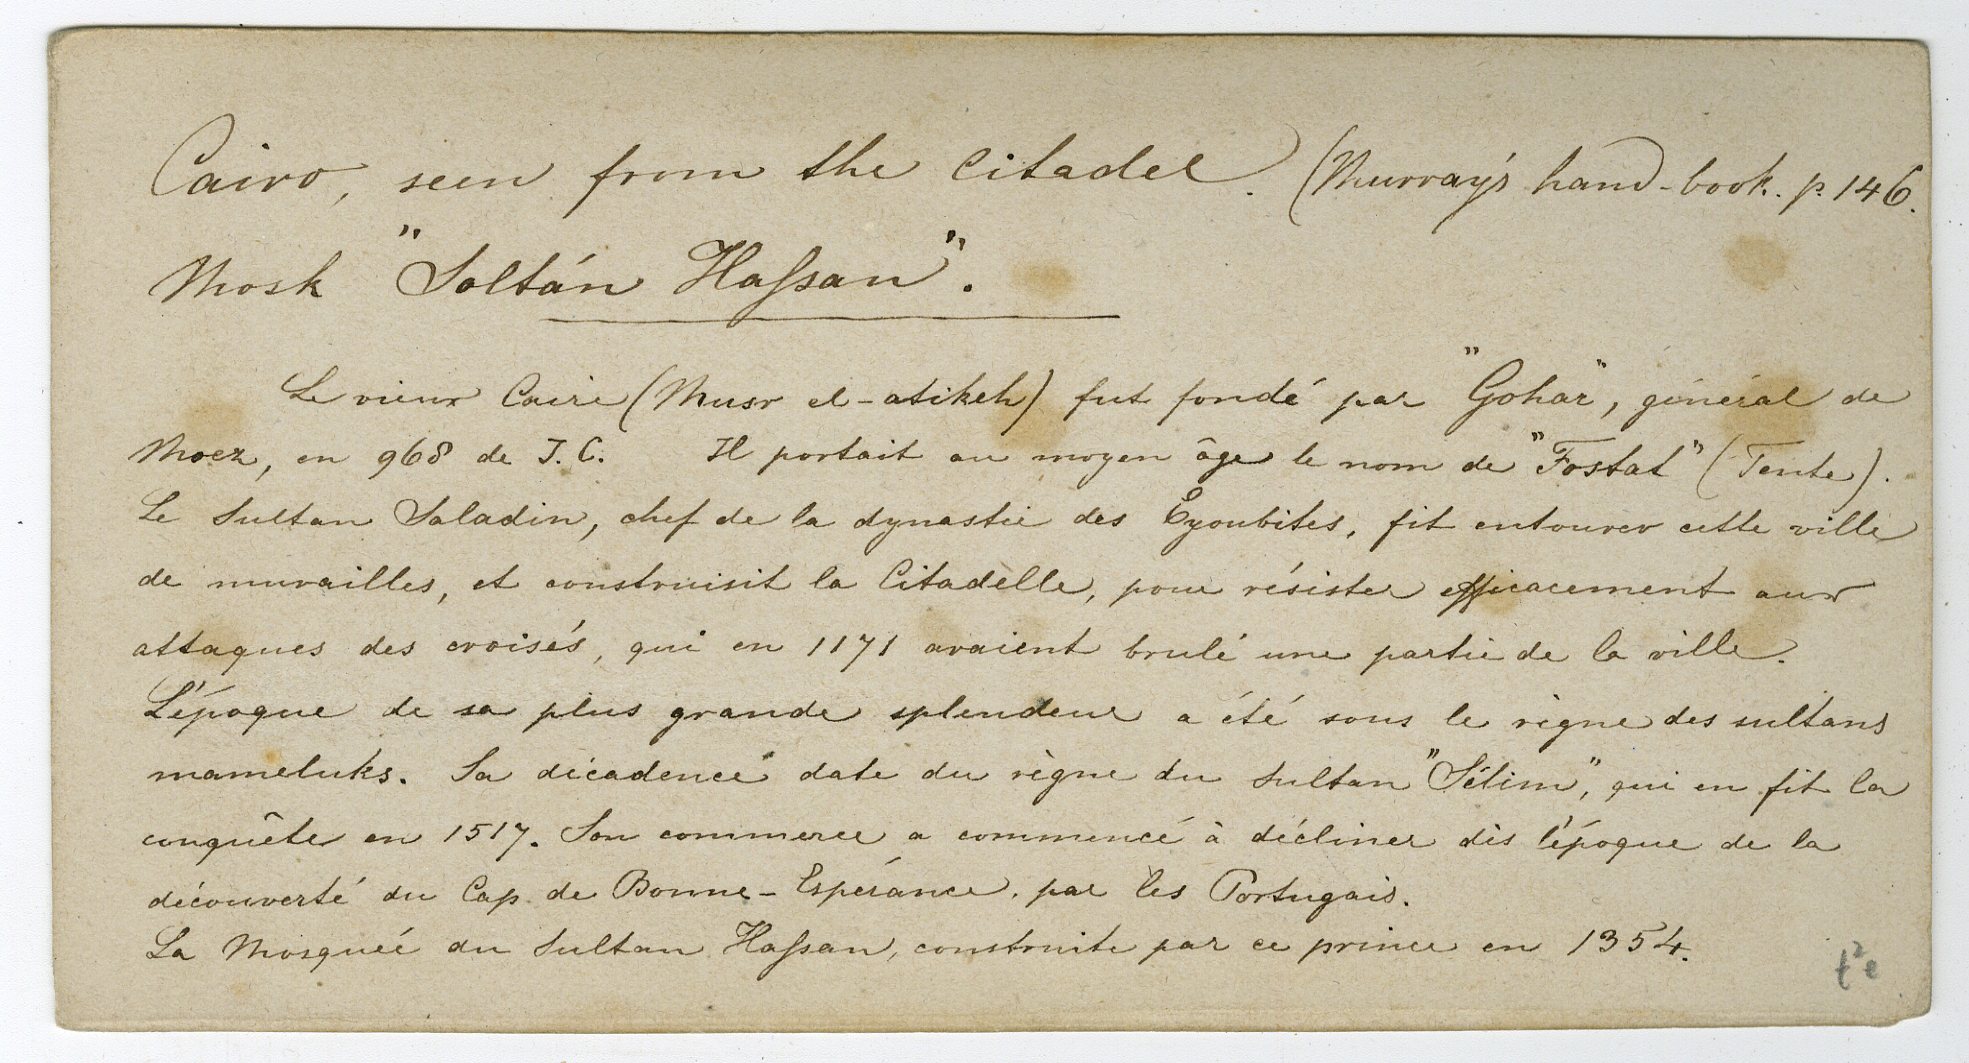 Cairo, seen from the Citadel. (Murray's hand-book. p. 146.
Mosk "Soltán Hassan".
Le vieux Caire (Musr el-atikeh) fut fondé par "Gohar", général de
Moez, en 968 de J. C. Il portait au moyen âge le nom de "Fostat" (Tente).
Le Sultan Saladin, chef de la dynastie des Eyoubites, fit entourer cette ville
de murailles, et construisit la Citadelle, pour résister efficacement aux
attaques des croisés, qui en 1171 avaient brulé une partie de la ville.
L'époque de sa plus grande splendeur a été sous le règne des sultans
mameluks. Sa décadence date du règne du Sultan "Sélim", qui en fit la
conquête en 1517. Son commerce a commencé à décliner dès l'époque de la
découverté du Cap de Bonne-Espérance, par les Portugais.
La Mosqueé du Sultan Hassan, construite par ce prince en 1354.